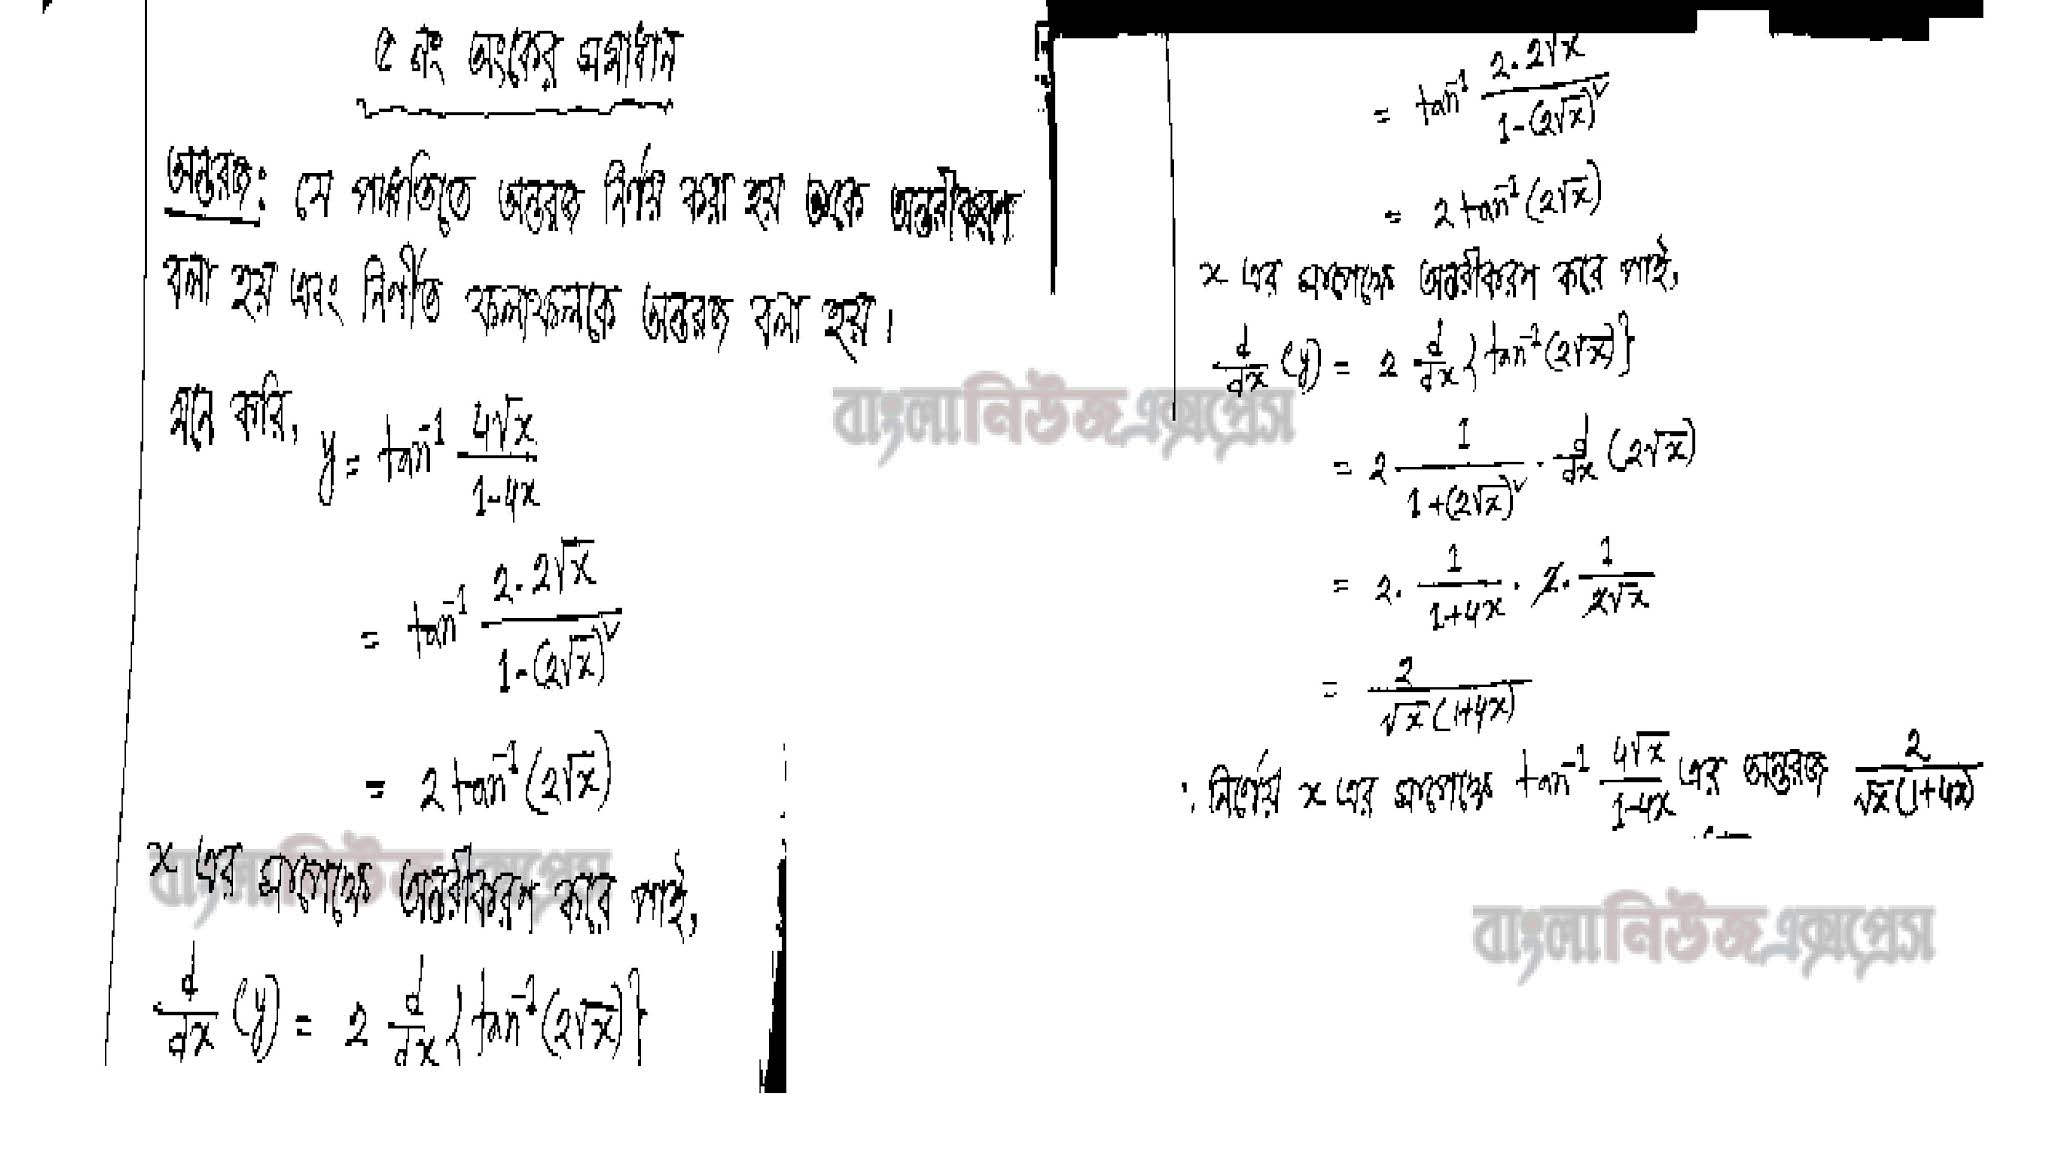 ৫ নং অংকের সমাধান
অন্তরজ: যে পদ্ধতিতে অন্তরজ নির্ণয় করা হয় তাকে অন্তরীকরণ
বলা হয় এবং নির্ণীত ফলাফলকে অন্তরজ বলা হয়।
মনে করি,
y = tan⁻¹ 4√x / 1-4x
= tan⁻¹ 2·2√x / 1-(2√x)²
= 2 tan⁻¹ (2√x)
x এর সাপেক্ষে অন্তরীকরণ করে পাই,
d/dx (y) = 2 d/dx {tan⁻¹(2√x)}
= tan⁻¹ 2·2√x / 1-(2√x)²
= 2 tan⁻¹ (2√x)
x এর সাপেক্ষে অন্তরীকরণ করে পাই,
d/dx (y) = 2 d/dx {tan⁻¹(2√x)}
= 2 1 / 1+(2√x)² · d/dx (2√x)
= 2 · 1 / 1+4x · 2 · 1 / 2√x
= 2 / √x(1+4x)
∴ নির্ণেয় x এর সাপেক্ষে tan⁻¹ 4√x / 1-4x এর অন্তরজ 2 / √x(1+4x)
বাংলানিউজএক্সপ্রেস
বাংলানিউজএক্সপ্রেস
বাংলানিউজএক্সপ্রেস